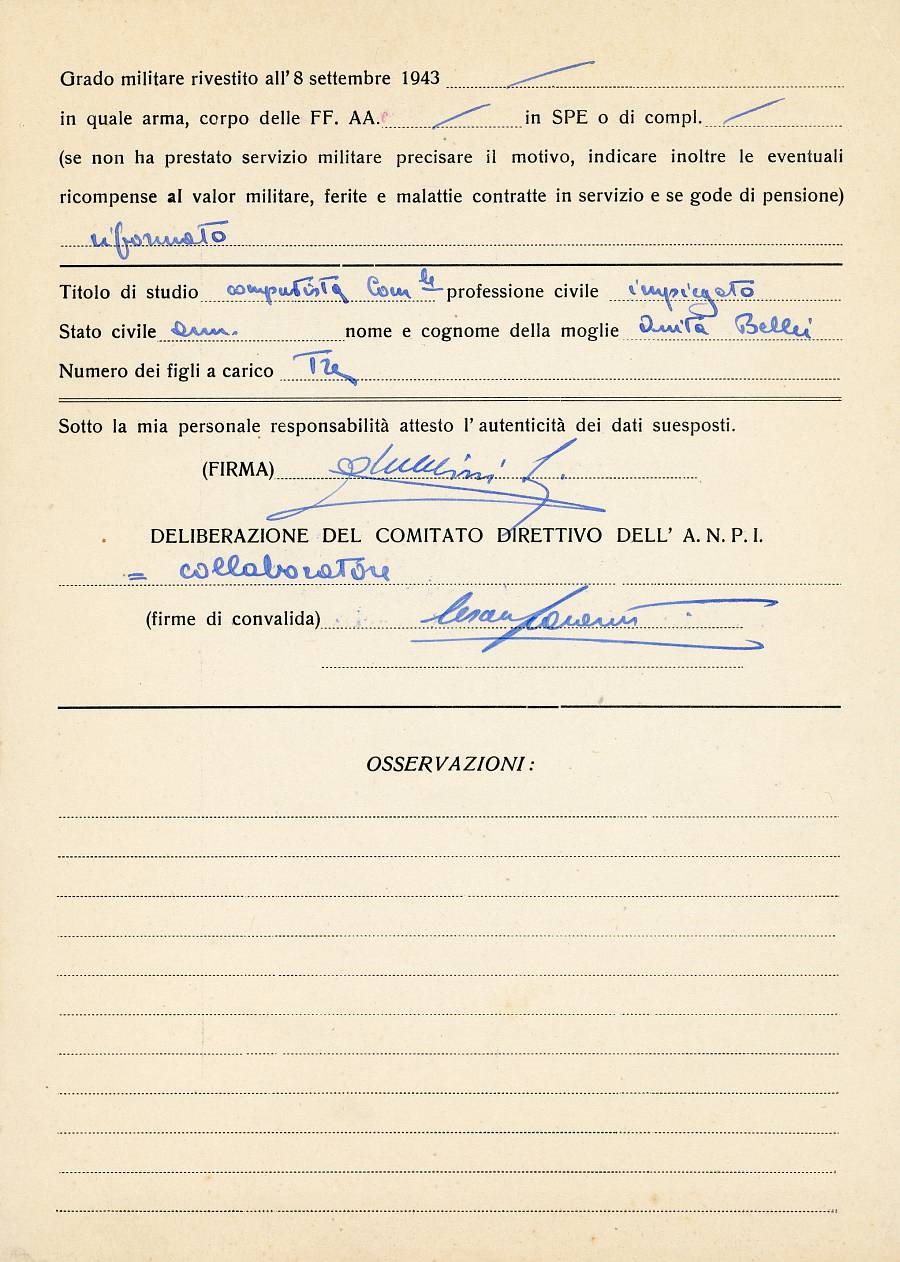 Grado militare rivestito all' 8 settembre 1943
in quale arma, corpo delle FF. AA. in SPE o di compl.
(se non ha prestato servizio militare precisare il motivo, indicare inoltre le eventuali
ricompense al valor militare, ferite e malattie contratte in servizio e se gode di pensione)
riformato
Titolo di studio computista Com le professione civile impiegato
Stato civile amm. nome e cognome della moglie Anita Bellei
Numero dei figli a carico Tre
Sotto la mia personale responsabilità attesto l'autenticità dei dati suesposti.
(FIRMA)
DELIBERAZIONE DEL COMITATO DIRETTIVO DELL' A. N. P. I.
= collaboratore
(firme di convalida)
OSSERVAZIONI: